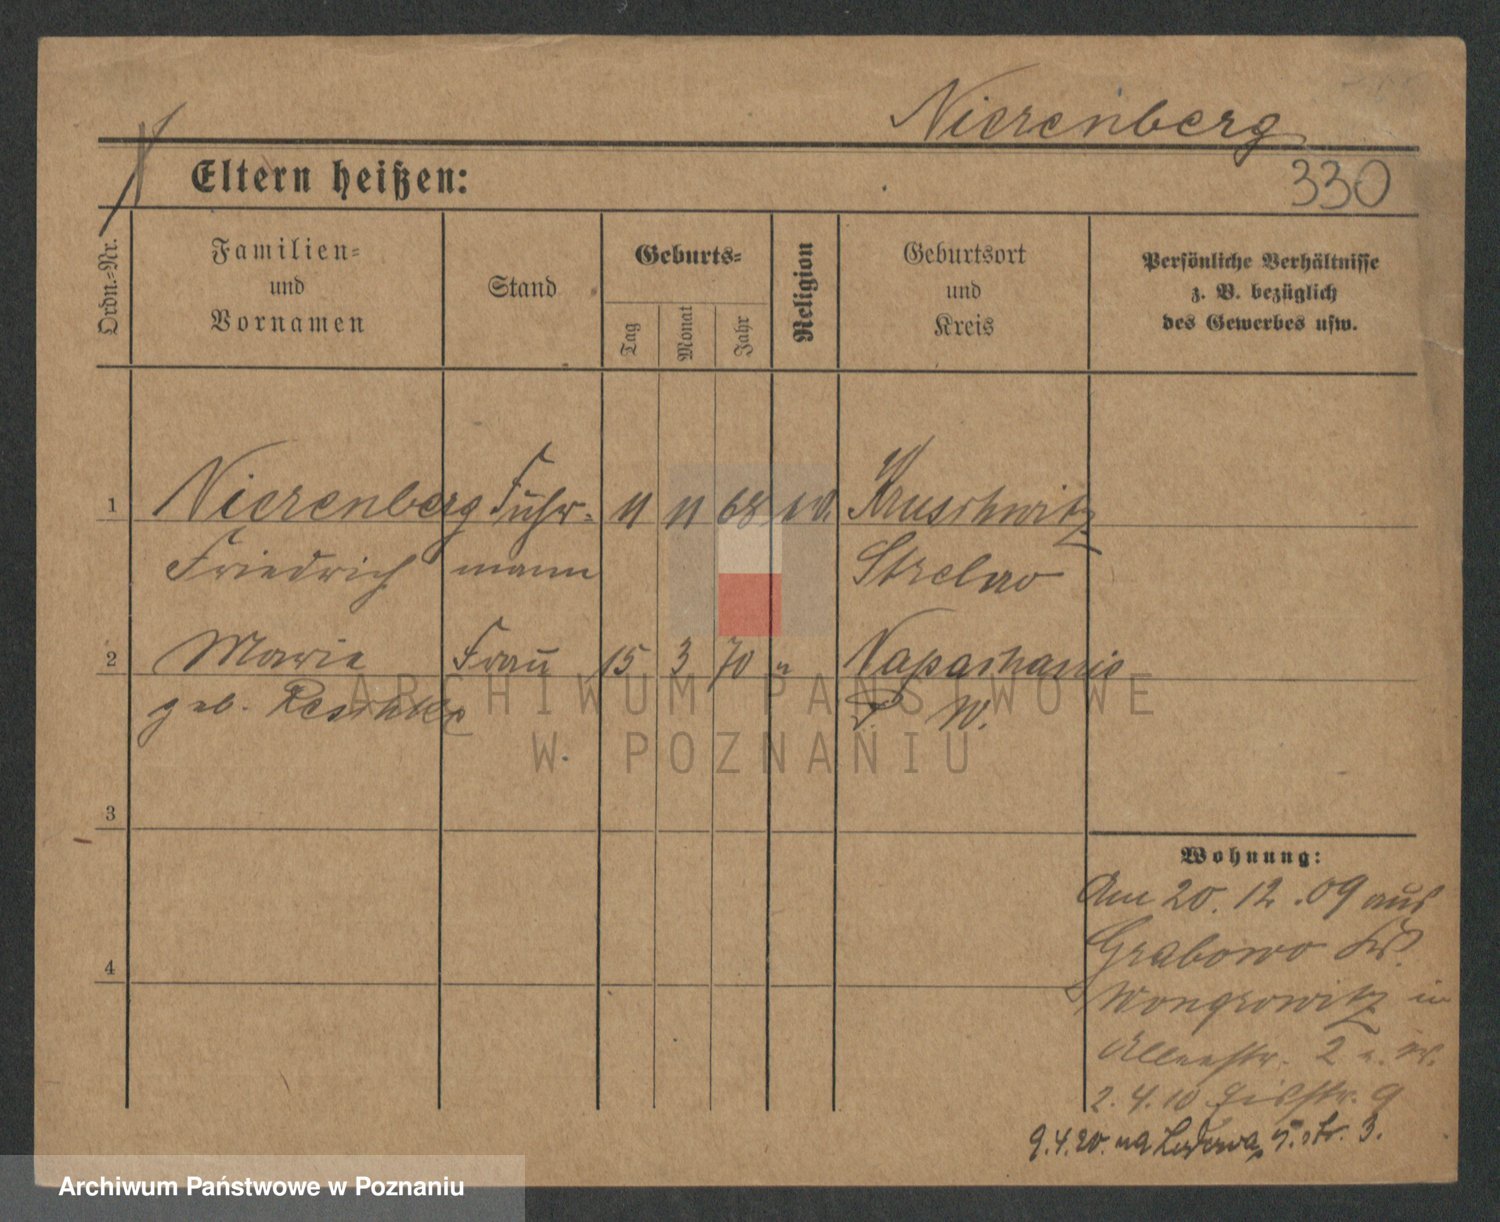 Nierenberg
330
Eltern heißen:
Ordn.-Nr.
Familien-
und
Vornamen
Stand
Geburts-
Tag
Monat
Jahr
Religion
Geburtsort
und
Kreis
Persönliche Verhältnisse
z. B. bezüglich
des Gewerbes usw.
1 Nierenberg Fuhr- 11 11 68 Kruschwitz
Friedrich mann Strelno
2 Marie Frau 15 3 70 "
geb. Reschke P. W.
3
4
Wohnung:
Am 20.12.09 aus
Grabowo
Wongrowitz in
2
2.4.10 9
9.4.20. na 3.
ARCHIWUM PAŃSTWOWE
W POZNANIU
Archiwum Państwowe w Poznaniu